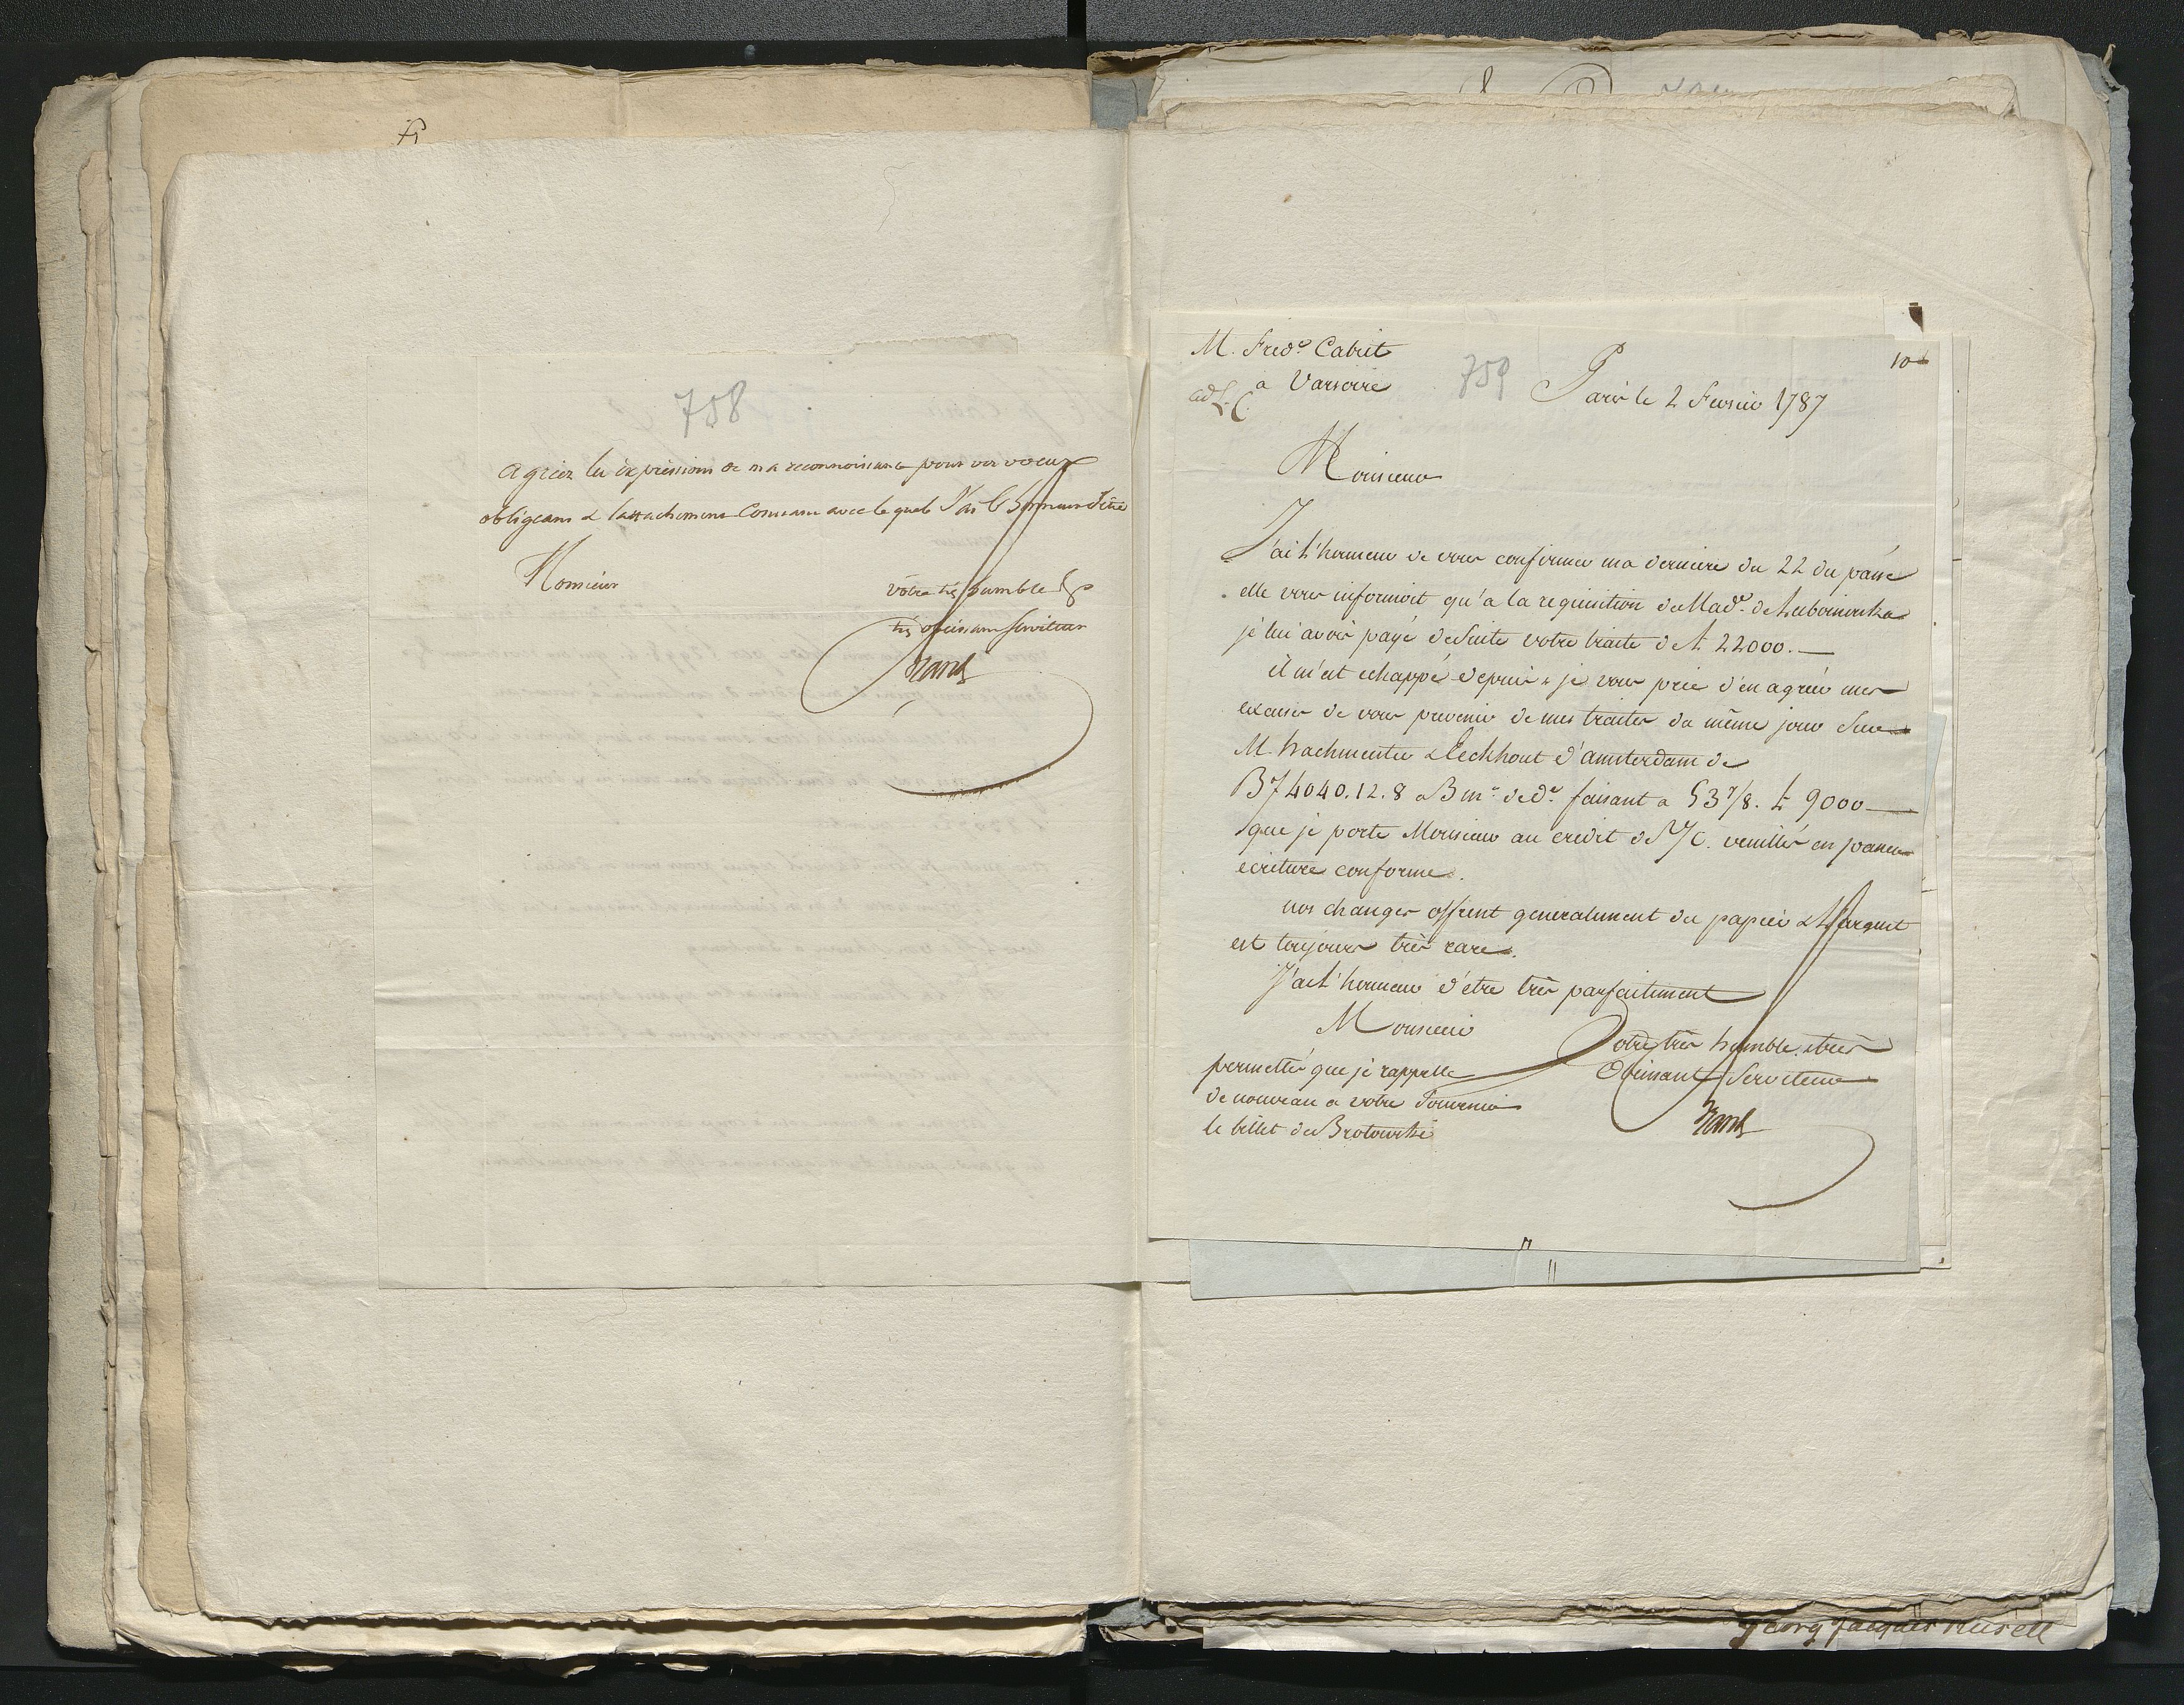 758
agréez les expressions de ma reconnoissance pour vos voeux
obligeans & l'attachement constant avec lequel J'ai l'honneur d'être
Monsieur
vôtre très humble &
très obéissant serviteur
759
M. Fred.c Cabrit
à Varsovie
10
Paris le 2 Fevrier 1787
Monsieur
J'ai l'honneur de vous confirmer ma derniere du 22 du passé
elle vous informoit qu'a la requisition de Mad.e de Lubomirska
je lui avois payé de suite votre traite de ₶ 22000.—
il m'est echappé depuis & je vous prie d'en agréer mes
excuses de vous prevenir de mes traites du même jour sur
M. & Eeckhout d'amsterdam de
4040.12.8 faisant a 53 7/8. ₶ 9000—
que je porte Monsieur au credit de V/C. veuillés en passer
ecriture conforme.
nos changes offrent generalement du papier & l'argent
est toujours très rare.
J'ai l'honneur d'être très parfaitement
Monsieur
Votre très humble & très
Obeissant Serviteur
permettés que je rappelle
de nouveau a votre Souvenir
le billet de Brotowski